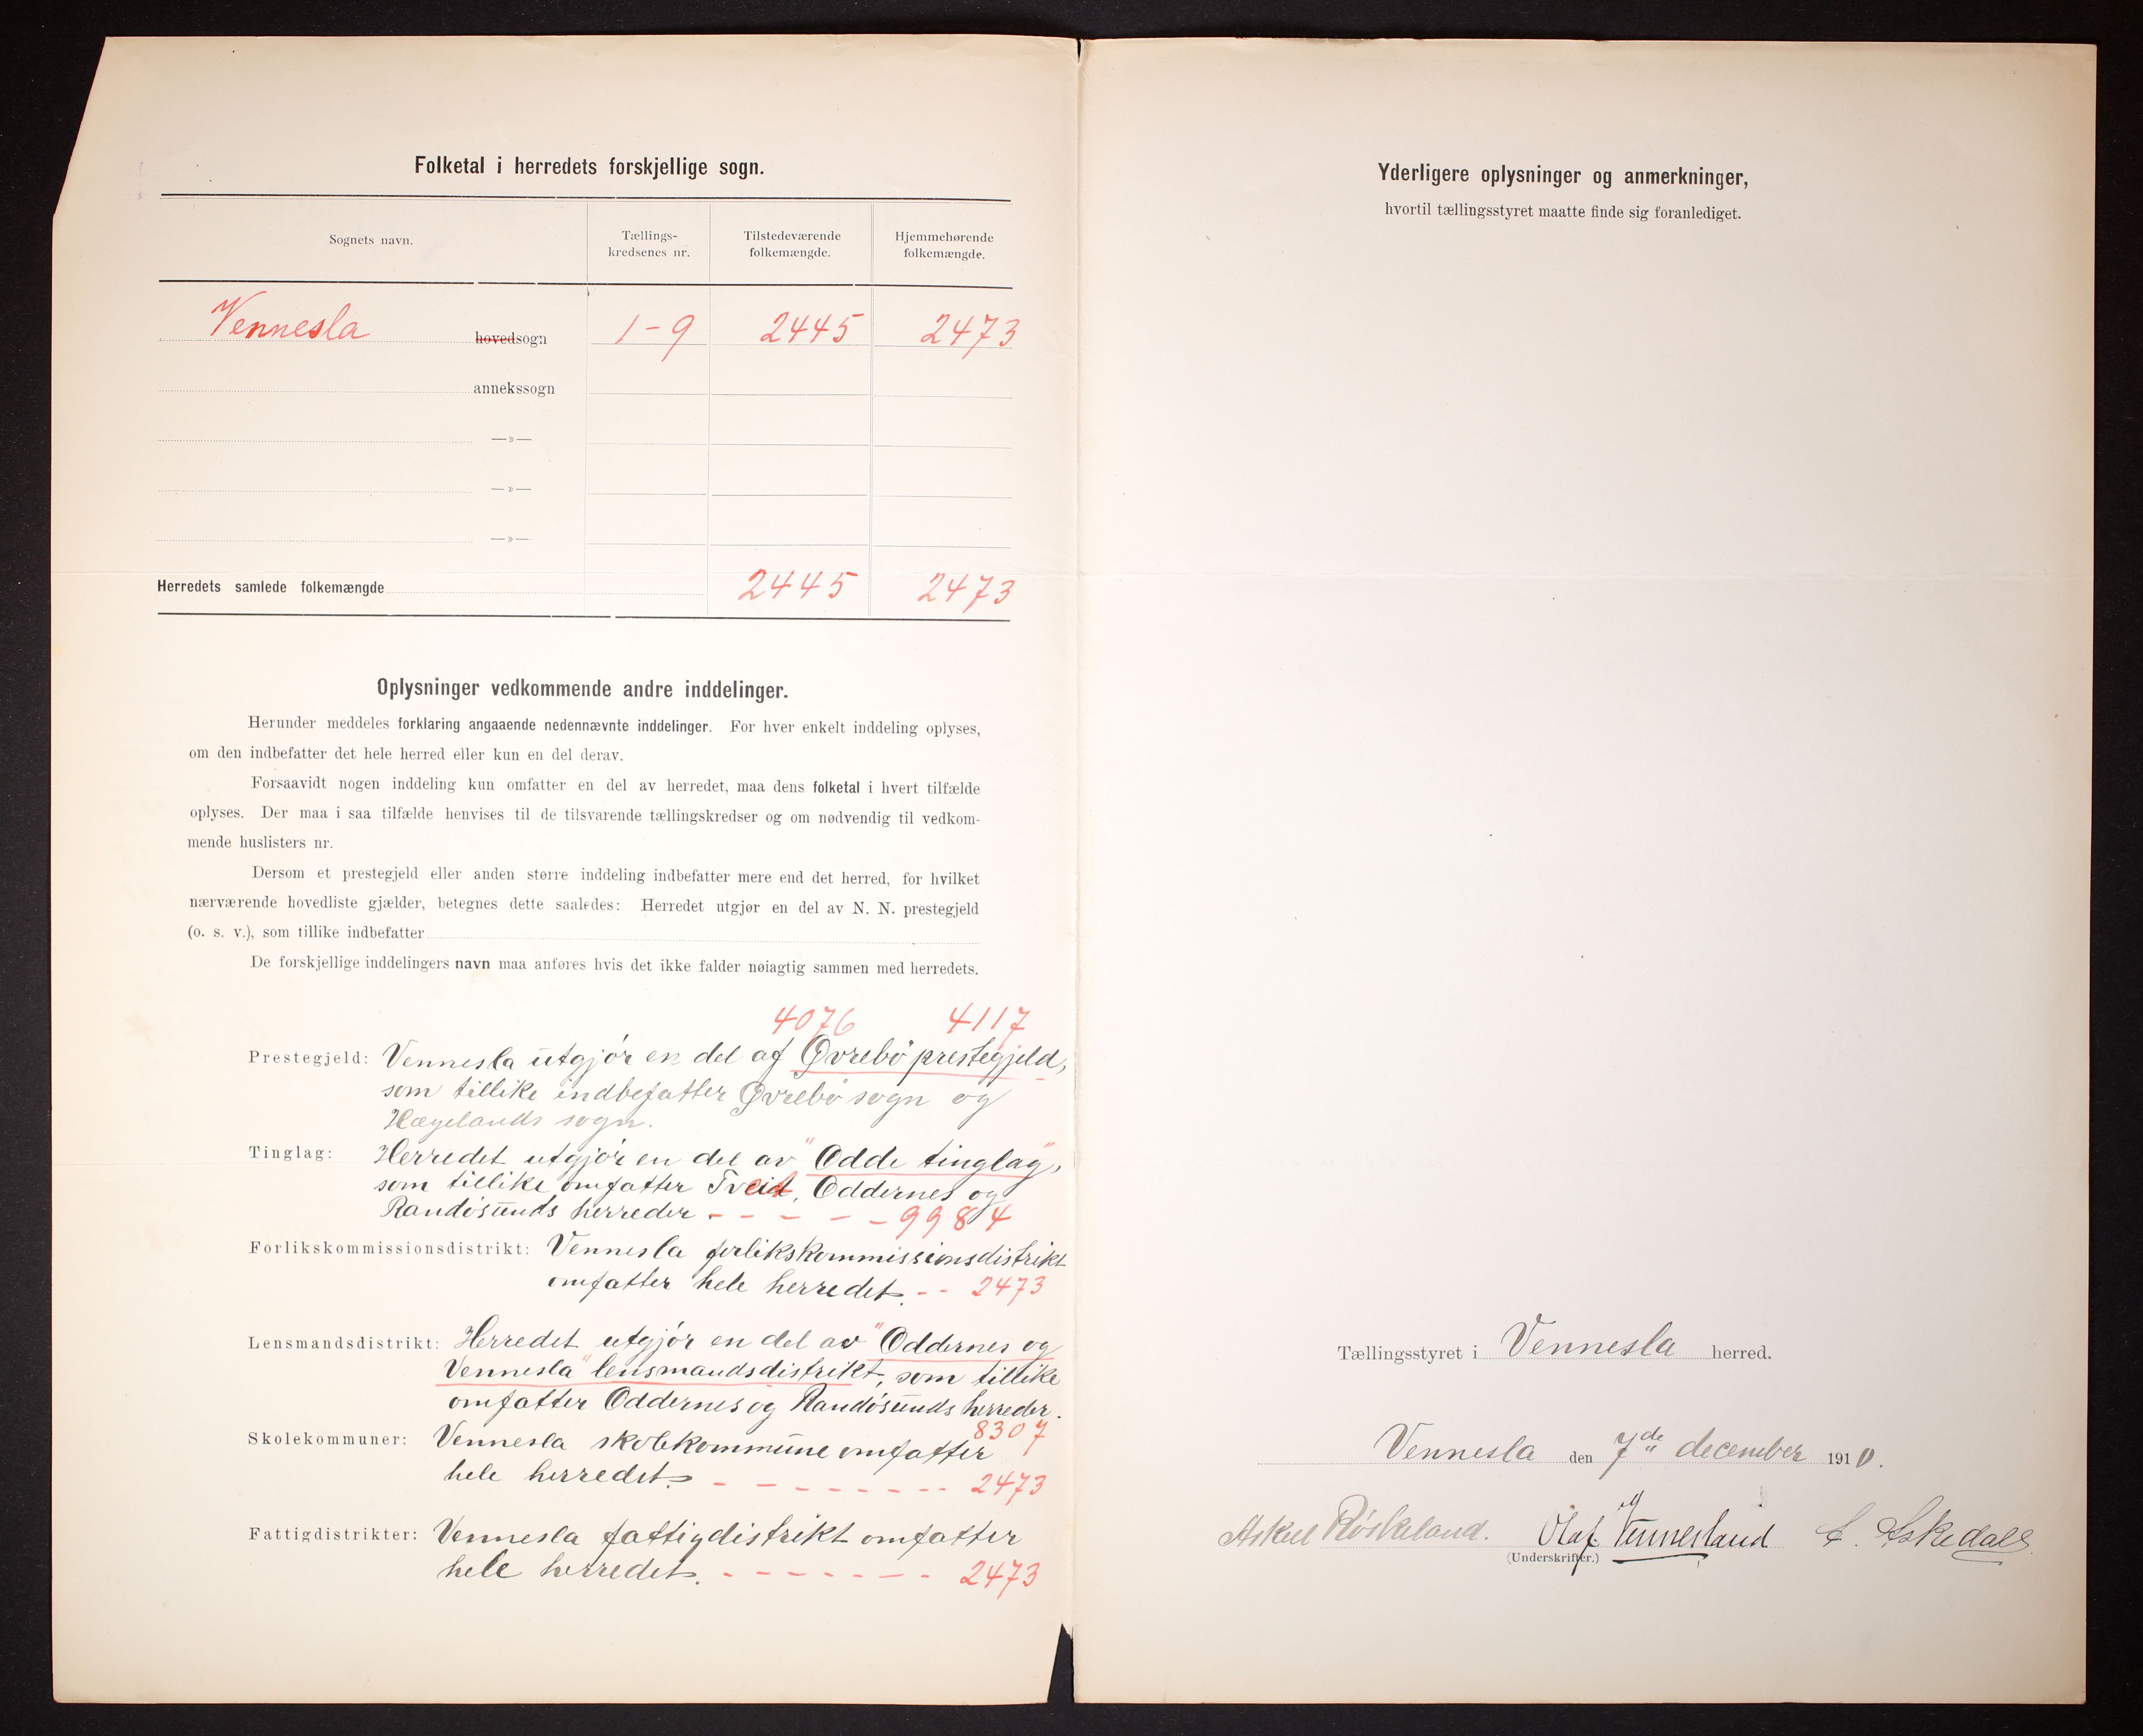 Folketal i herredets forskjellige sogn.
Sognets navn.
Tællings-
kredsenes nr.
Tilstedeværende
folkemængde.
Hjemmehørende
folkemængde.
Vennesla hovedsogn 1-9 2445 2473
annekssogn
—»—
—»—
—»—
Herredets samlede folkemængde 2445 2473
Oplysninger vedkommende andre inddelinger.
Herunder meddeles forklaring angaaende nedennævnte inddelinger. For hver enkelt inddeling oplyses,
om den indbefatter det hele herred eller kun en del derav.
Forsaavidt nogen inddeling kun omfatter en del av herredet, maa dens folketal i hvert tilfælde
oplyses. Der maa i saa tilfælde henvises til de tilsvarende tællingskredser og om nødvendig til vedkom-
mende huslisters nr.
Dersom et prestegjeld eller anden større inddeling indbefatter mere end det herred, for hvilket
nærværende hovedliste gjælder, betegnes dette saaledes: Herredet utgjør en del av N. N. prestegjeld
(o. s. v.), som tillike indbefatter
De forskjellige inddelingers navn maa anføres hvis det ikke falder nøiagtig sammen med herredets.
4076 4117
Prestegjeld: Vennesla utgjör en del af Øvrebö prestegjeld,
som tillike indbefatter Øvrebö sogn og
Hægelands sogn.
Tinglag: Herredet utgjör en del av "Odde tinglag",
som tillike omfatter Tveid, Oddernes og
Randösunds herreder - - - - - 9984
Forlikskommissionsdistrikt: Vennesla forlikskommissionsdistrikt
omfatter hele herredet. - - 2473
Lensmandsdistrikt: Herredet utgjör en del av "Oddernes og
Vennesla" lensmandsdistrikt, som tillike
omfatter Oddernes og Randösunds herreder.
8307
Skolekommuner: Vennesla skolekommune omfatter
hele herredet. - - - - - - - - 2473
Fattigdistrikter: Vennesla fattigdistrikt omfatter
hele herredet. - - - - - - - - 2473
Yderligere oplysninger og anmerkninger,
hvortil tællingsstyret maatte finde sig foranlediget.
Tællingsstyret i Vennesla herred.
Vennesla den 7de december 1910.
Røskeland. Olaf Vennesland Askedal
(Underskrifter.)